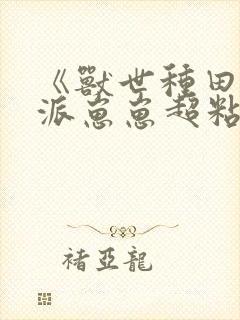 《獸世種田
派崽崽超粘
褚亞龍